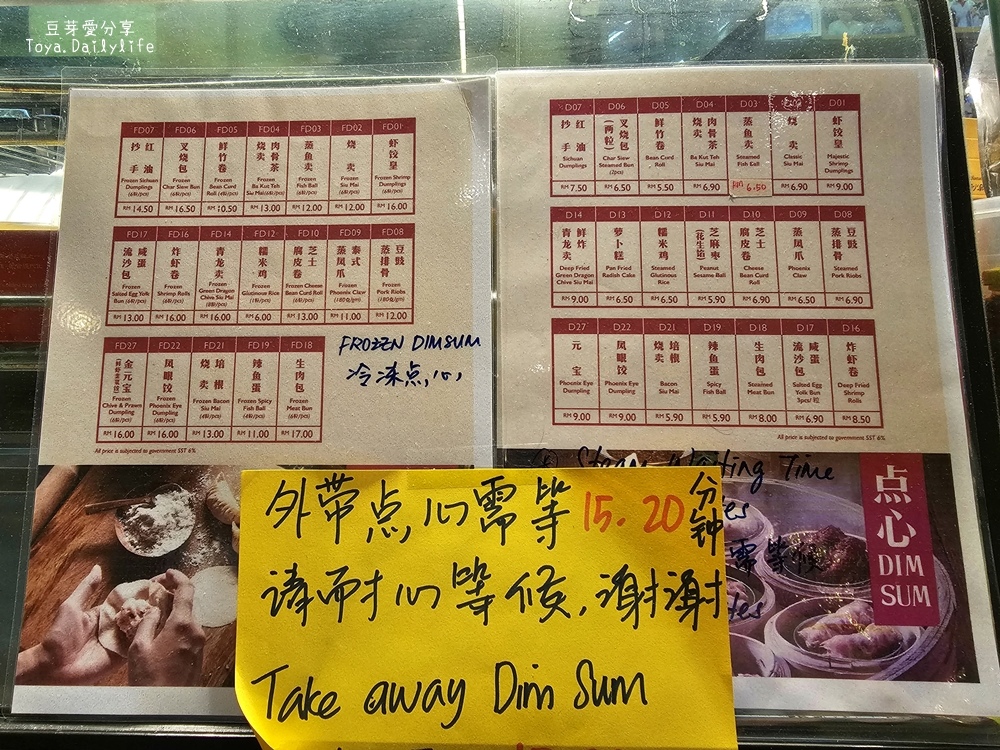 豆芽愛分享
Toya.Dailylife
FD07 FD06 FD05 FD04 FD03 FD02 FD01
抄手 红油 叉烧包 鲜竹卷 烧卖 肉骨茶 蒸鱼卖 烧卖 虾饺皇
Frozen Sichuan Dumplings (6粒/pcs) Frozen Char Siew Bun (6粒/pcs) Frozen Bean Curd Roll (4粒/pcs) Frozen Ba Kut Teh Siu Mai (6粒/pcs) Frozen Fish Ball (6粒/pcs) Frozen Siu Mai (6粒/pcs) Frozen Shrimp Dumplings (6粒/pcs)
RM 14.50 RM 16.50 RM 10.50 RM 13.00 RM 12.00 RM 12.00 RM 16.00
FD17 FD16 FD14 FD12 FD10 FD09 FD08
流沙包 咸蛋 炸虾卷 青龙卖 糯米鸡 腐皮卷 芝士 蒸凤爪 泰式 蒸排骨 豆豉
Frozen Salted Egg Yolk Bun (6粒/pcs) Frozen Shrimp Rolls (6粒/pcs) Frozen Green Dragon Chive Siu Mai (8粒/pcs) Frozen Glutinous Rice (1粒/pcs) Frozen Cheese Bean Curd Roll (4粒/pcs) Frozen Phoenix Claw (180g/gm) Frozen Pork Riobs (180g/gm)
RM 13.00 RM 16.00 RM 16.00 RM 6.00 RM 13.00 RM 11.00 RM 12.00
FD27 FD22 FD21 FD19 FD18
金元宝 凤眼饺 烧卖 培根 辣鱼蛋 生肉包
Frozen Chive & Prawn Dumpling (6粒/pcs) Frozen Phoenix Eye Dumpling (6粒/pcs) Frozen Bacon Siu Mai (6粒/pcs) Frozen Spicy Fish Ball (6粒/pcs) Frozen Meat Bun (6粒/pcs)
RM 16.00 RM 16.00 RM 13.00 RM 11.00 RM 17.00
FROZEN DIMSUM
冷冻点心
All price is subjected to government SST 6%
D07 D06 D05 D04 D03 D02 D01
抄手 红油 (两粒) 叉烧包 鲜竹卷 烧卖 肉骨茶 蒸鱼卖 烧卖 虾饺皇
Sichuan Dumplings Char Siew Steamed Bun (2pcs) Bean Curd Roll Ba Kut Teh Siu Mai Steamed Fish Ball Classic Siu Mai Majestic Shrimp Dumplings
RM 7.50 RM 6.50 RM 5.50 RM 6.90 RM 6.50 RM 6.90 RM 9.00
D14 D13 D12 D11 D10 D09 D08
青龙卖 鲜炸 萝卜糕 糯米鸡 (花生馅) 芝麻枣 腐皮卷 芝士 蒸凤爪 蒸排骨 豆豉
Deep Fried Green Dragon Chive Siu Mai Pan Fried Radish Cake Steamed Glutinous Rice Peanut Sesame Ball Cheese Bean Curd Roll Phoenix Claw Steamed Pork Riobs
RM 9.00 RM 6.50 RM 6.50 RM 5.90 RM 6.90 RM 6.50 RM 6.90
D27 D22 D21 D19 D18 D17 D16
元宝 凤眼饺 烧卖 培根 辣鱼蛋 生肉包 流沙包 咸蛋 炸虾卷
Phoenix Eye Dumping Phoenix Eye Dumpling Bacon Siu Mai Spicy Fish Ball Steamed Meat Bun Salted Egg Yolk Bun 3pcs/粒 Deep Fried Shrimp Rolls
RM 9.00 RM 9.00 RM 5.90 RM 5.90 RM 8.00 RM 6.90 RM 8.50
All price is subjected to government SST 6%
Steam Waiting Time
需等候
点心
DIM
SUM
外带点心需等 15.20 分钟
请耐心等候,谢谢
Take away Dim Sum